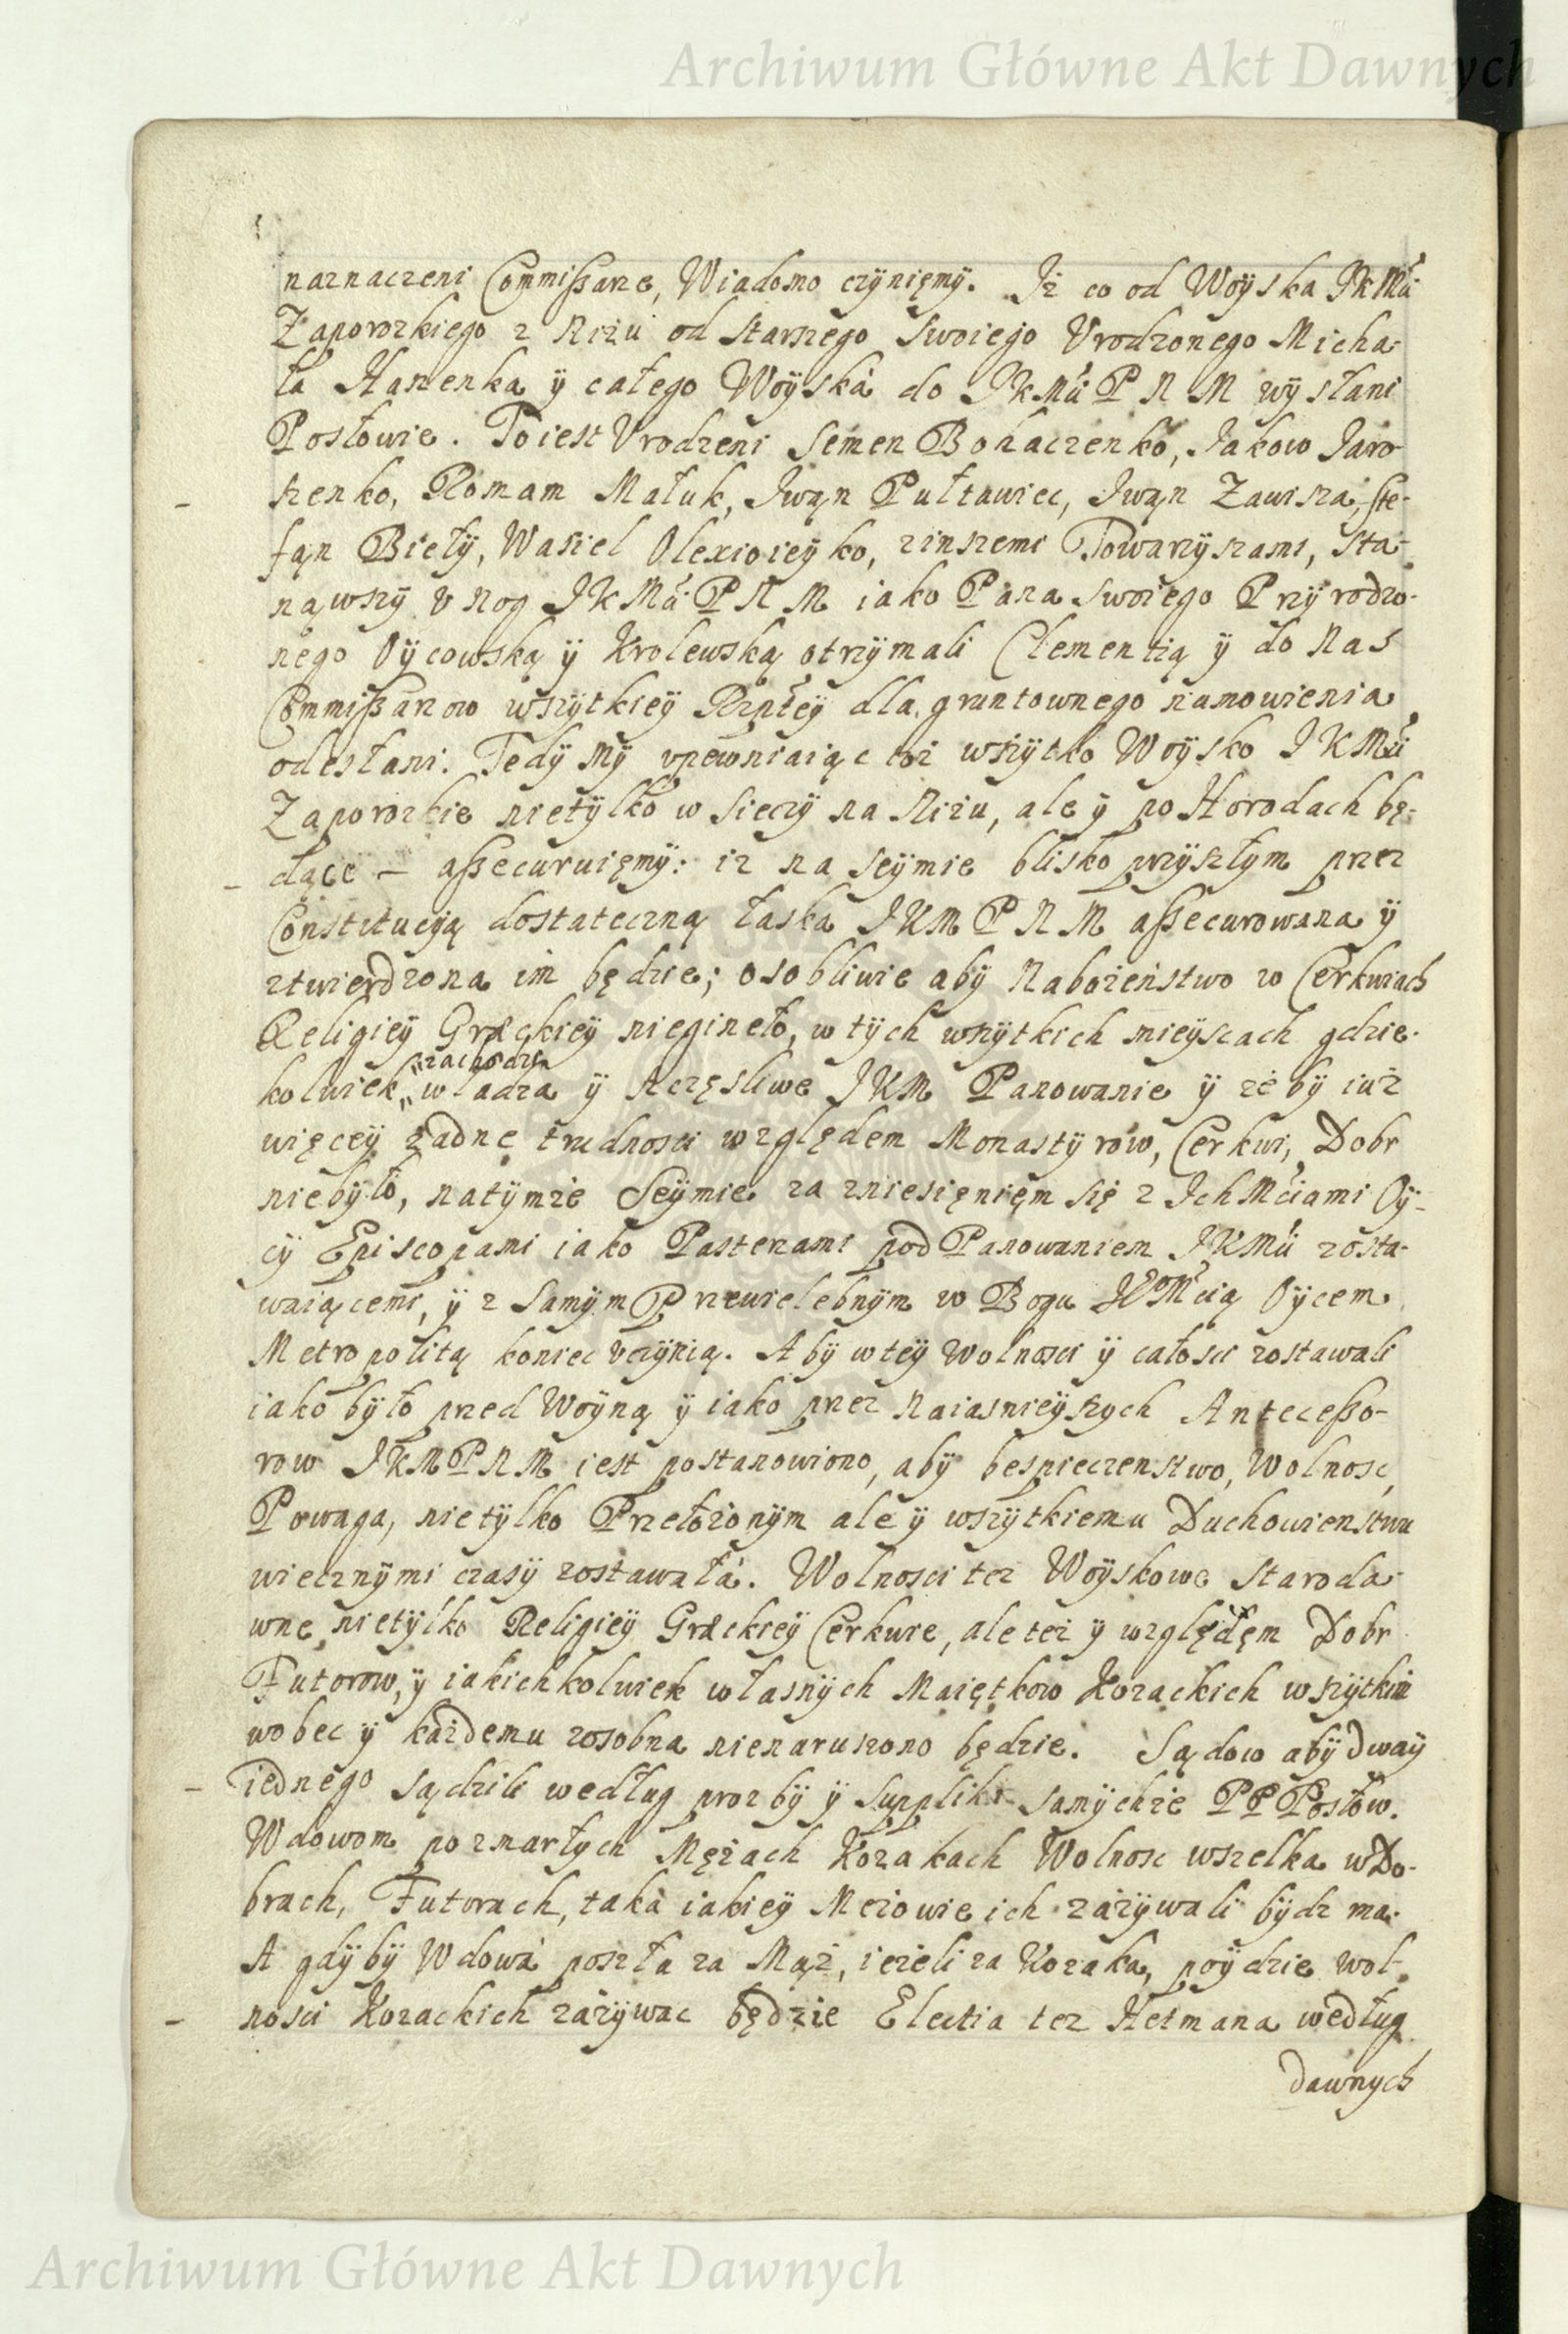 Archiwum Główne Akt Dawnych
naznaczeni Commissarze, Wiadomo czynięmy. Iż co od Woyska JKMći
Zaporozkiego z Niżu od starszego swoiego Vrodzonego Micha-
ła Hanenka ÿ całego Woÿska do JKMći P N M wysłani
Posłowie. To iest Vrodzeni Semen Bohaczenko, Jakow Jaro-
szenko, Romam Małuk, Jwąn Pułtawiec, Jwąn Zawisza, Ste-
fąn Biełÿ, Wasiel Olexioieÿko, zinszemi Towarzÿszami, sta-
nąwszÿ v nog JKMći P N M iako Pana swoiego Przÿrodzo-
nego Oÿcowską ÿ Krolewską otrzÿmali Clementią ÿ do Nas
Commissarzow wszÿtkieÿ Rzpłeÿ dla gruntownego namowienia
odesłani. Tedÿ Mÿ vpewniaiąc toż wszÿtko Woÿsko JKMći
Zaporozkie nietÿlko w Sieczÿ na Niżu, ale ÿ po Horodach bę-
dące – assecuruięmÿ: iż na Seÿmie blisko przÿszłym przez
Constitucÿą dostateczną łaska JKM P N M assecurowana ÿ
ztwierdzona im będzie; osobliwie abÿ Nabożeństwo w Cerkwiach
Religieÿ Græckieÿ niegineło, w tÿch wszÿtkich mieÿscach gdzie-
zachodzi
kolwiek władza ÿ szczęsliwe JKM Panowanie ÿ żebÿ iuż
więceÿ żadne trudnosci względem Monastÿrow, Cerkwi, Dobr
niebÿło, natÿmże Seÿmie za zniesięnięm się z Ich Mćiami Oÿ-
cÿ Episcopami iako Pasterzami pod Panowaniem JKMći zosta-
waiącemi, ÿ z Samÿm Przewielebnÿm w Bogu JEMcią Oÿcem
Metropolitą koniec vczÿnią. Abÿ w teÿ Wolnosci ÿ całosci zostawali
iako bÿło przed Woÿną ÿ iako przez Naiasnieÿszych Antecesso-
row JKM P N M iest postanowiono, abÿ bespieczenstwo, Wolnosc,
Powaga, nietÿlko Przełożonÿm ale ÿ wszÿtkiemu Duchowienstwu
wiecznÿmi czasÿ zostawała. Wolnosci tez Woÿskowe staroda-
wne, nietÿlko Religieÿ Græckieÿ Cerkwie, ale też ÿ względęm Dobr
Futorow, ÿ iakichkolwiek własnÿch Maiętkow Kozackich wszÿtkim
wobec ÿ każdemu zosobna nienaruszono będzie. Sądow abÿ dwaÿ
iednego sądzili według prozbÿ ÿ Suppliki samÿchże PP Posłow.
Wdowom po zmarłych Mężach Kozakach Wolnosc wszelka w Do-
brach, Futorach, taka iakieÿ Mężowie ich zażÿwali bÿdz ma.
A gdÿbÿ Wdowa poszła za Mąż, ieżeli za Kozaka, poÿdzie wol-
nosci Kozackich zażÿwac będzie Electia tez Hetmana według
dawnych
Archiwum Główne Akt Dawnych